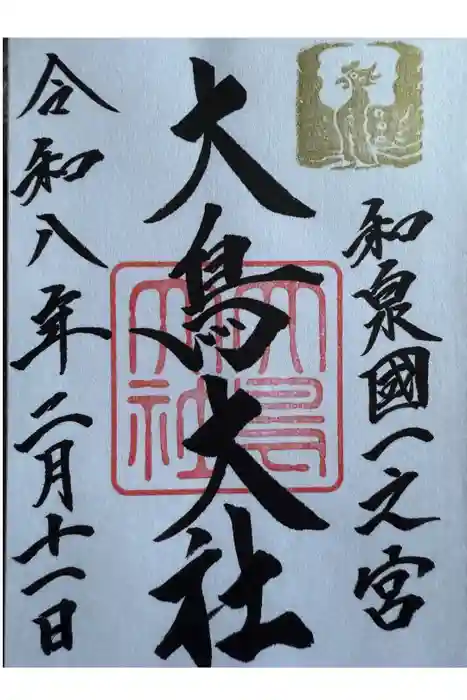 和泉國一之宮
大鳥大社
大鳥大社
令和八年二月十一日